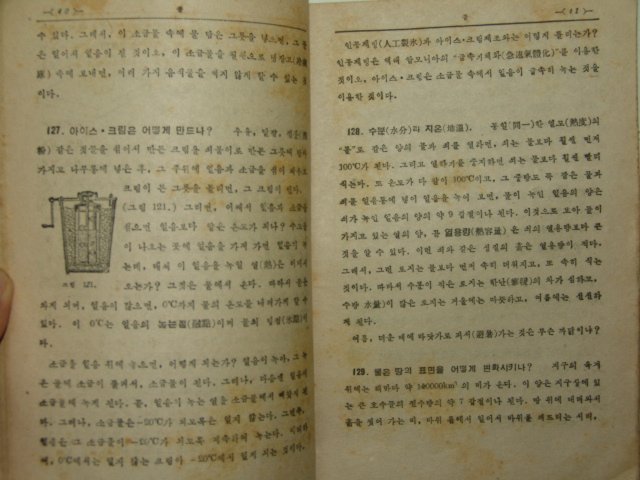 물
수 있다. 그래서, 이 소금물 속에 물 담은 그릇을 넣으면, 그 물
은 얼어서 얼음이 된 것이오, 이 소금물을 펌프으로 냉장고
속에 보내면, 여러 가지 음식물을 썩지 않게 할 수 있는 것
이다.
127. 아이스·크림은 어떻게 만드나? 우유, 밀깜, 설탕
같은 것들을 섞어서 만든 크림을 쇠붙이로 만든 그릇에 담아
가지고 나무통에 넣은 후, 그 주위에 얼음과 소금을 섞어 채우고
크림이 든 그릇을 돌리면, 그 크림이 된다.
(그림 121.) 그러면, 어째서 얼음과 소금을
섞으면 얼음보다 많은 온도가 되나?
이 나오는 곳에 얼음을 가져 가면 얼음이 녹
는데, 대체 이 얼음을 녹일 열(熱)은 어디서
오는가? 그것은 물에서 온다. 따라서 물은
그림 121.
차게 되며, 얼음이 많으면, 0°C까지 물의 온도를 나려가게 할 수
있다. 이 0°C는 얼음의 녹는점(融點)이며 물의 빙점(氷點)이
다.
소금을 얼음 위에 놓으면, 어떻게 되는가? 얼음이 녹아, 그 녹
은 물에 소금이 풀려서, 소금물이 된다. 그러나, 다음엔 얼음이
소금물에 녹게 된다. 물론, 얼음이 녹는 열을 소금물에서 빼앗게 된
다. 그러나, 소금물은 -20°C가 되도록은 얼지 않는다. 그런데,
얼음은 그 소금물이 -20°C가 되도록 지속하여 녹는다. 이리하
여, 0°C에서는 얼지 않는 크림이 -20°C에서 얼게 되는 것이다.
물
인공제빙(人工製氷)과 아이스·크림제조와는 어떻게 틀리는가?
인공제빙은 액체 암모니아의 "급속기체화(急速氣體化)"를 이용한
것이오, 아이스·크림은 소금물 속에서 얼음이 급속히 녹는 것을
이용한 것이다.
128. 수분(水分)과 지온(地溫). 동일(同一)한 열도(熱度)의
"불"로 같은 양의 물과 쇠를 열하면, 쇠는 물보다 훨씬 먼저
100°C가 된다. 그리고 열하기를 중지하면 쇠는 물보다 훨씬 빨리
식는다. 또 온도가 다 같이 100°C이고, 그 중량도 똑 같은 물과
쇠를 얼음통에 넣어 얼음을 녹여 보면, 물이 녹인 얼음의 양은
쇠가 녹인 얼음의 양의 약 9 갑절이나 된다. 이것으로 보아 물이
가지고 있는 열의 양, 즉 열용량(熱容量)은 쇠의 열용량보다 큰
것을 알 수 있다. 이런 쇠와 같은 성질의 흙은 열용량이 적다.
그래서, 그런 토지는 물보다 먼저 속히 더워지고, 또 속히 식
는 것이다. 따라서 수분이 적은 토지는 한난(寒暖)의 차가 심하고,
수량(水量)이 많은 토지는 겨울에는 따뜻하고, 여름에는 선선하
게 된다.
여름, 더운 때에 바닷가로 피서(避暑)가는 것은 무슨 까닭이냐?
129. 물은 땅의 표면을 어떻게 변화시키나? 지구의 육지
위에는 해마다 약 140000km³의 비가 온다. 이 양은 지구상에 있
는 큰 호수물의 전수량의 약 7 갑절이나 된다. 땅 위에 내려와서
흙을 씻어 가는 비, 바위 틈에서 얼어서 바위를 깨뜨리는 서리,